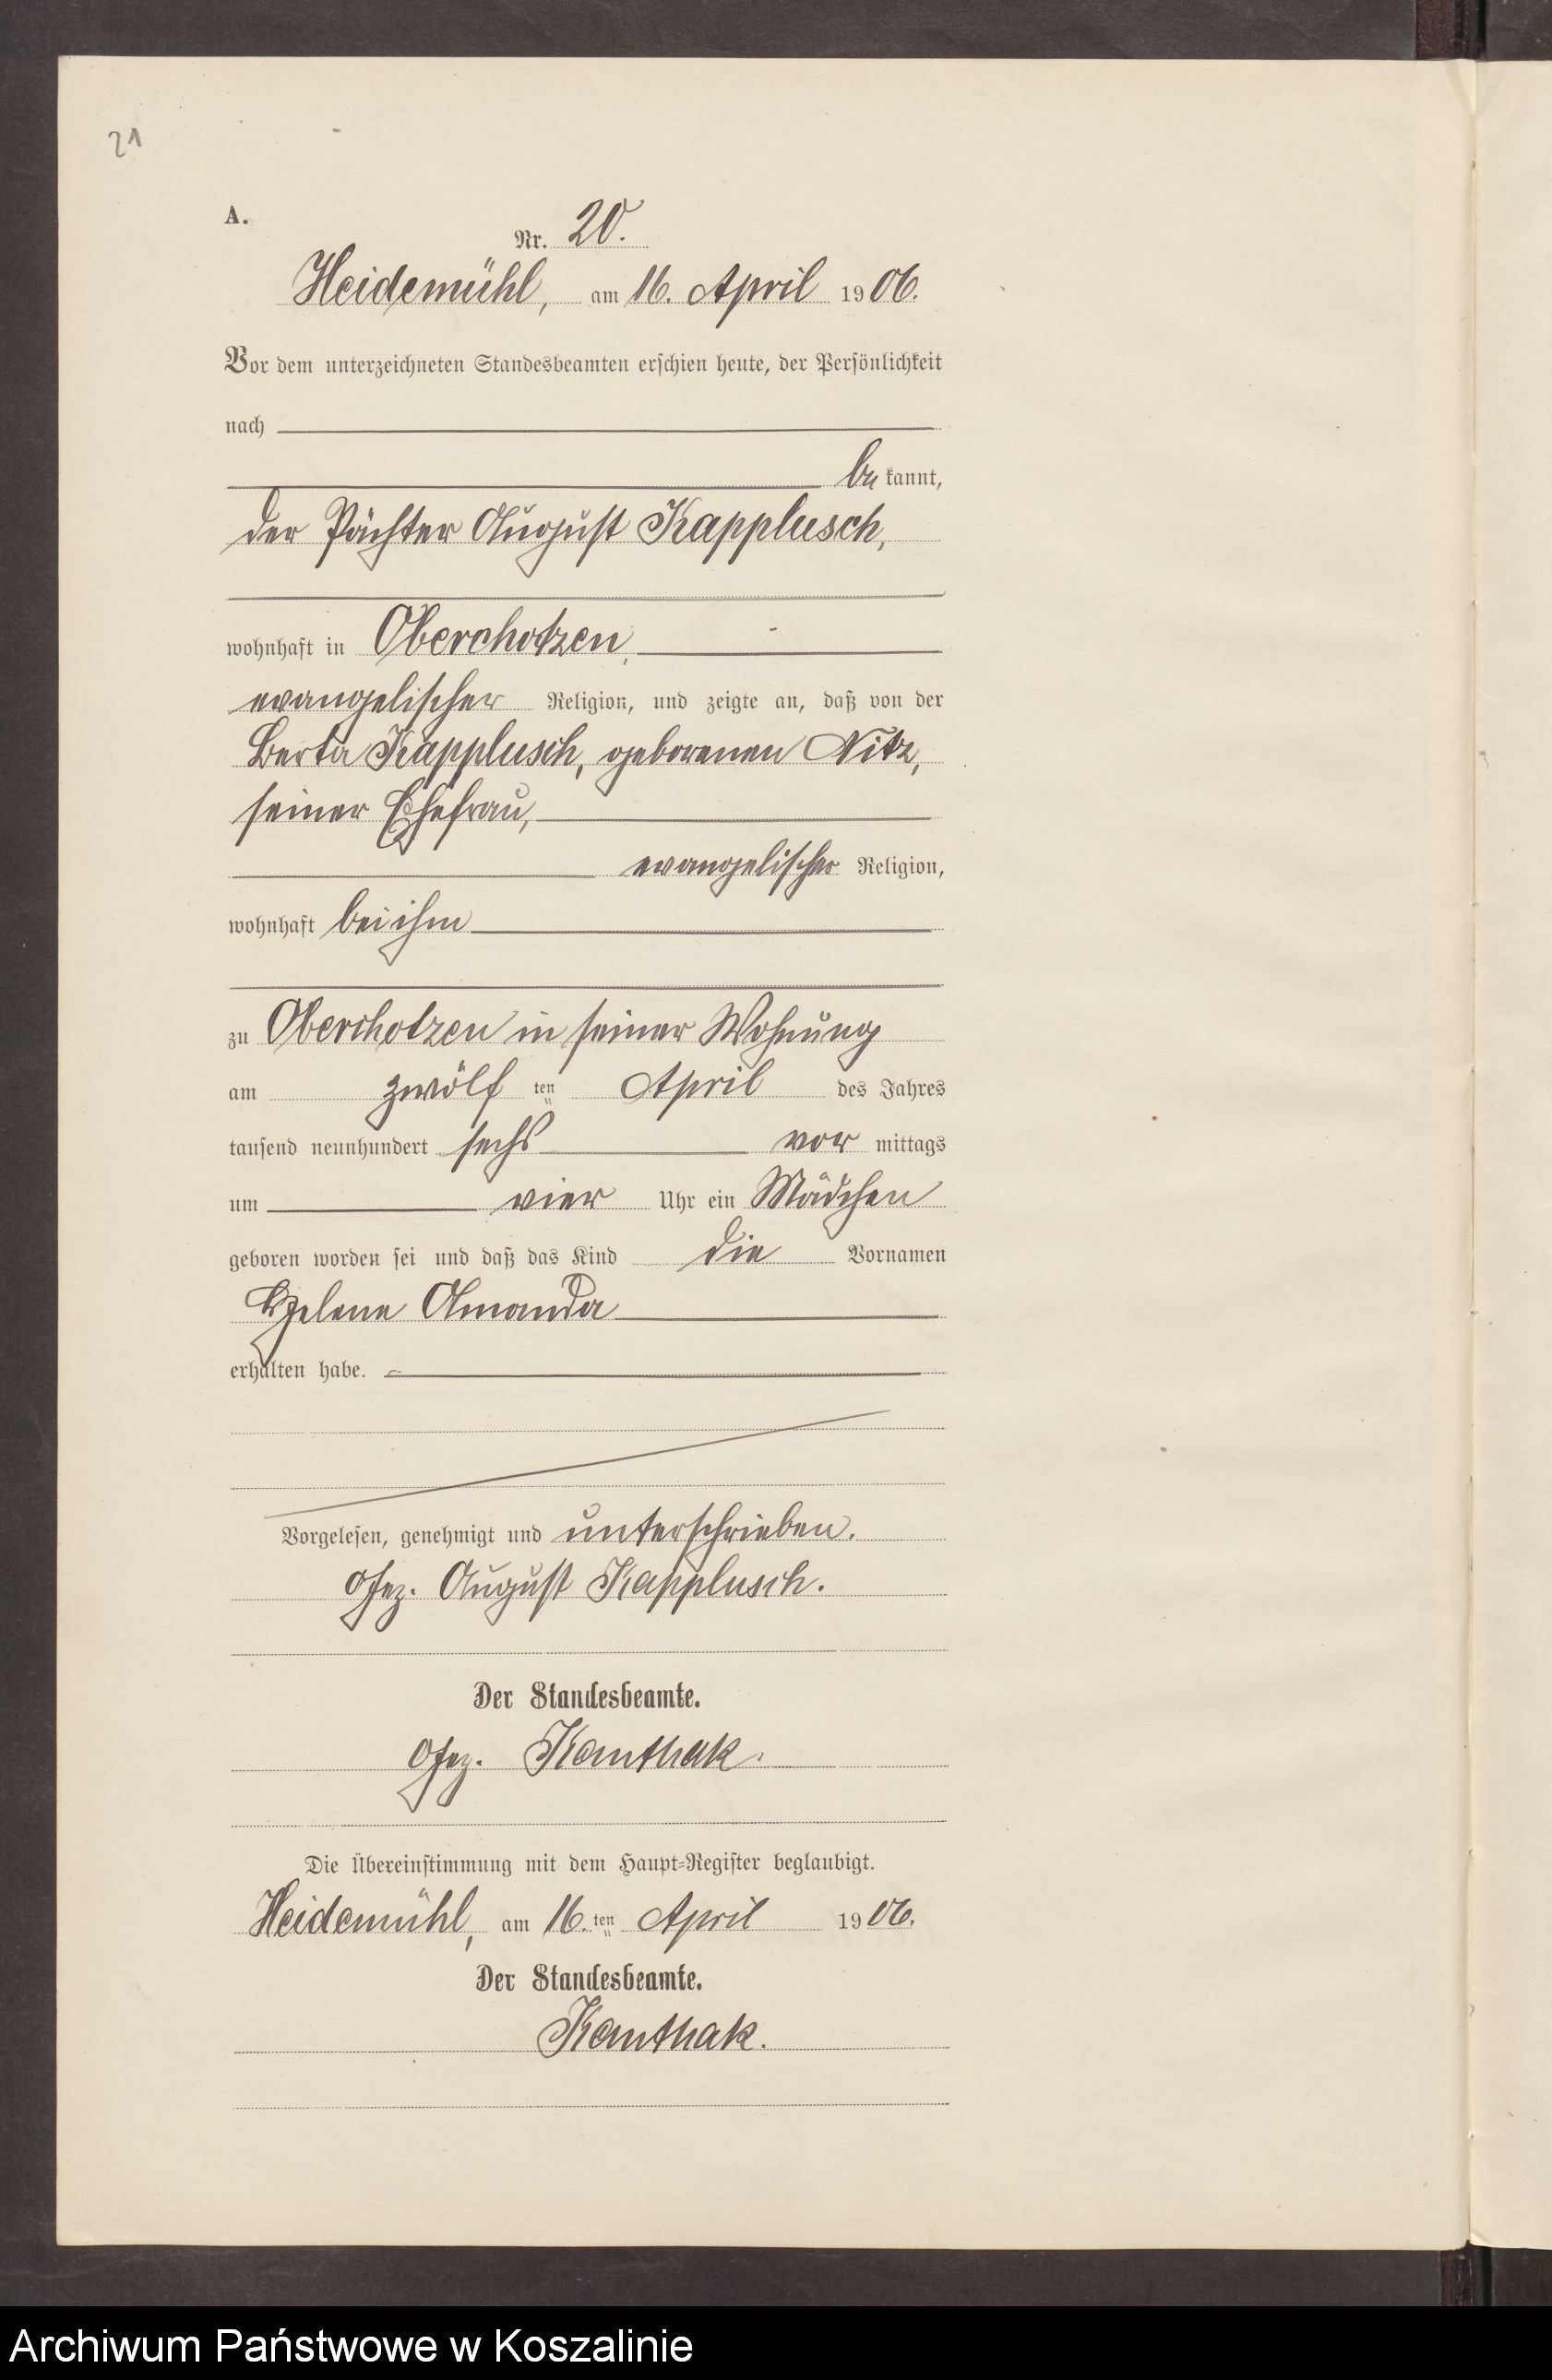 21
A.
Nr. 20.
Heidemühl, am 16. April 1906.
Vor dem unterzeichneten Standesbeamten erschien heute, der Persönlichkeit
nach
bekannt,
der Pächter August Kapplusch,
wohnhaft in Oberchotzen,
evangelischer Religion, und zeigte an, daß von der
Berta Kapplusch, geborenen Nitz,
seiner Ehefrau,
evangelischer Religion,
wohnhaft bei ihm
zu Oberchotzen in seiner Wohnung
am zwölf ten April des Jahres
tausend neunhundert sechs vor mittags
um vier Uhr ein Mädchen
geboren worden sei und daß das Kind die Vornamen
Helene Amanda
erhalten habe.
Vorgelesen, genehmigt und unterschrieben.
Gez. August Kapplusch.
Der Standesbeamte.
Gez. Kanthak.
Die Übereinstimmung mit dem Haupt-Register beglaubigt.
Heidemühl, am 16. ten April 1906.
Der Standesbeamte.
Kanthak.
Archiwum Państwowe w Koszalinie